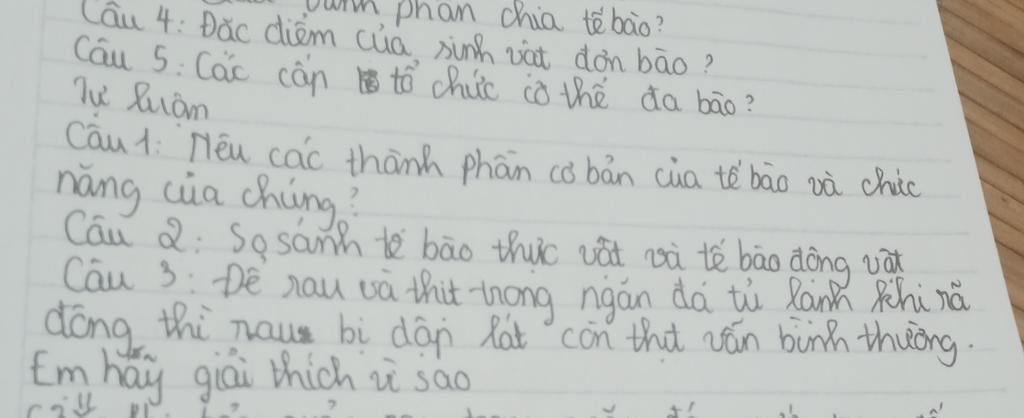 phân chia tế bào?
Câu 4: Đặc điểm của sinh vật đơn bào?
Câu 5: Các cấp tổ chức cơ thể đa bào?
Tự luận
Câu 1: Nêu các thành phần cơ bản của tế bào và chức
năng của chúng?
Câu 2: So sánh tế bào thực vật và tế bào động vật
Câu 3: Để rau và thịt trong ngăn đá tủ lạnh khi rã
đông thì rau bị dập nát còn thịt vẫn bình thường.
Em hãy giải thích vì sao